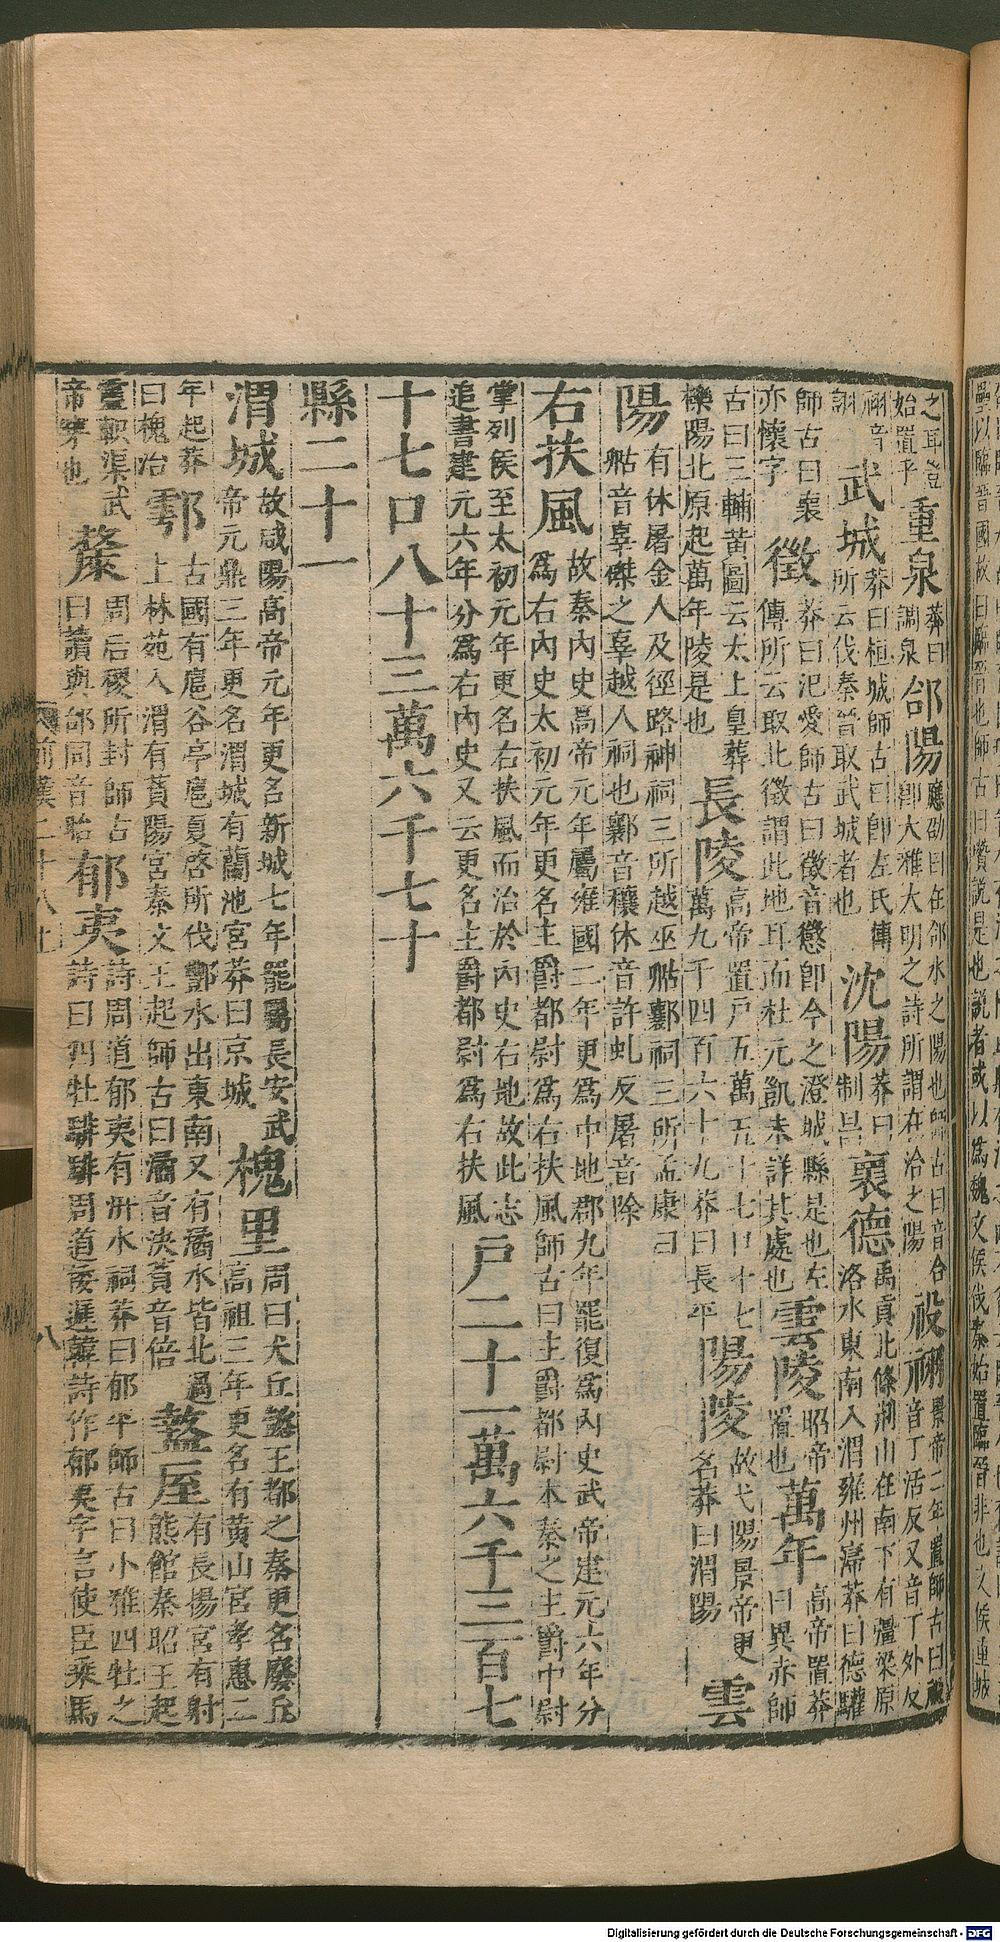 之耳豈始置乎重泉莽曰調泉郃陽應劭曰在郃水之陽也師古曰音合即大雅大明之詩所謂在洽之陽祋祤景帝二年置師古曰祋音丁活反又音丁外反
祤音詡武城莽曰桓城師古曰即左氏傳所云伐秦晉取武城者也沈陽莽曰制昌褱德禹貢北條荊山在南下有彊梁原洛水東南入渭雍州莽曰德驩
師古曰褱亦懷字徵莽曰汜愛師古曰徵音懲即今之澄城縣是也左傳所云取北徵謂此地耳而杜元凱未詳其處也雲陵昭帝置也萬年高帝置莽曰異赤師
古曰三輔黃圖云太上皇葬櫟陽北原起萬年陵是也長陵高帝置戶五萬五十七口十七萬九千四百六十九莽曰長平陽陵故弋陽景帝更名莽曰渭陽雲
陽有休屠金人及徑路神祠三所越巫祠三所孟康曰音辜傑之辜越人祠也音穰休音許虬反屠音除
右扶風故秦內史高帝元年屬雍國二年更爲中地郡九年罷復爲內史武帝建元六年分爲右內史太初元年更名主爵都尉爲右扶風師古曰主爵都尉本秦之主爵中尉
掌列侯至太初元年更名右扶風而治於內史右地故此志追書建元六年分爲右內史又云更名主爵都尉爲右扶風戶二十一萬六千三百七
十七口八十三萬六千七十
縣二十一
渭城故咸陽高帝元年更名新城七年罷屬長安武帝元鼎三年更名渭城有蘭池宮莽曰京城槐里周曰犬丘懿王都之秦更名廢丘高祖三年更名有黃山宮孝惠二
年起莽曰槐治鄠古國有扈谷亭扈夏啓所伐酆水出東南又有潏水皆北過上林苑入渭有萯陽宮秦文王起師古曰潏音決萯音倍盩厔有長揚宮有射熊館秦昭王起
靈軹渠武帝穿也斄周后稷所封師古曰讀與邰同音胎郁夷詩周道郁夷有汧水祠莽曰郁平師古曰小雅四牡之詩曰四牡騑騑周道倭遲韓詩作郁夷字言使臣乘馬